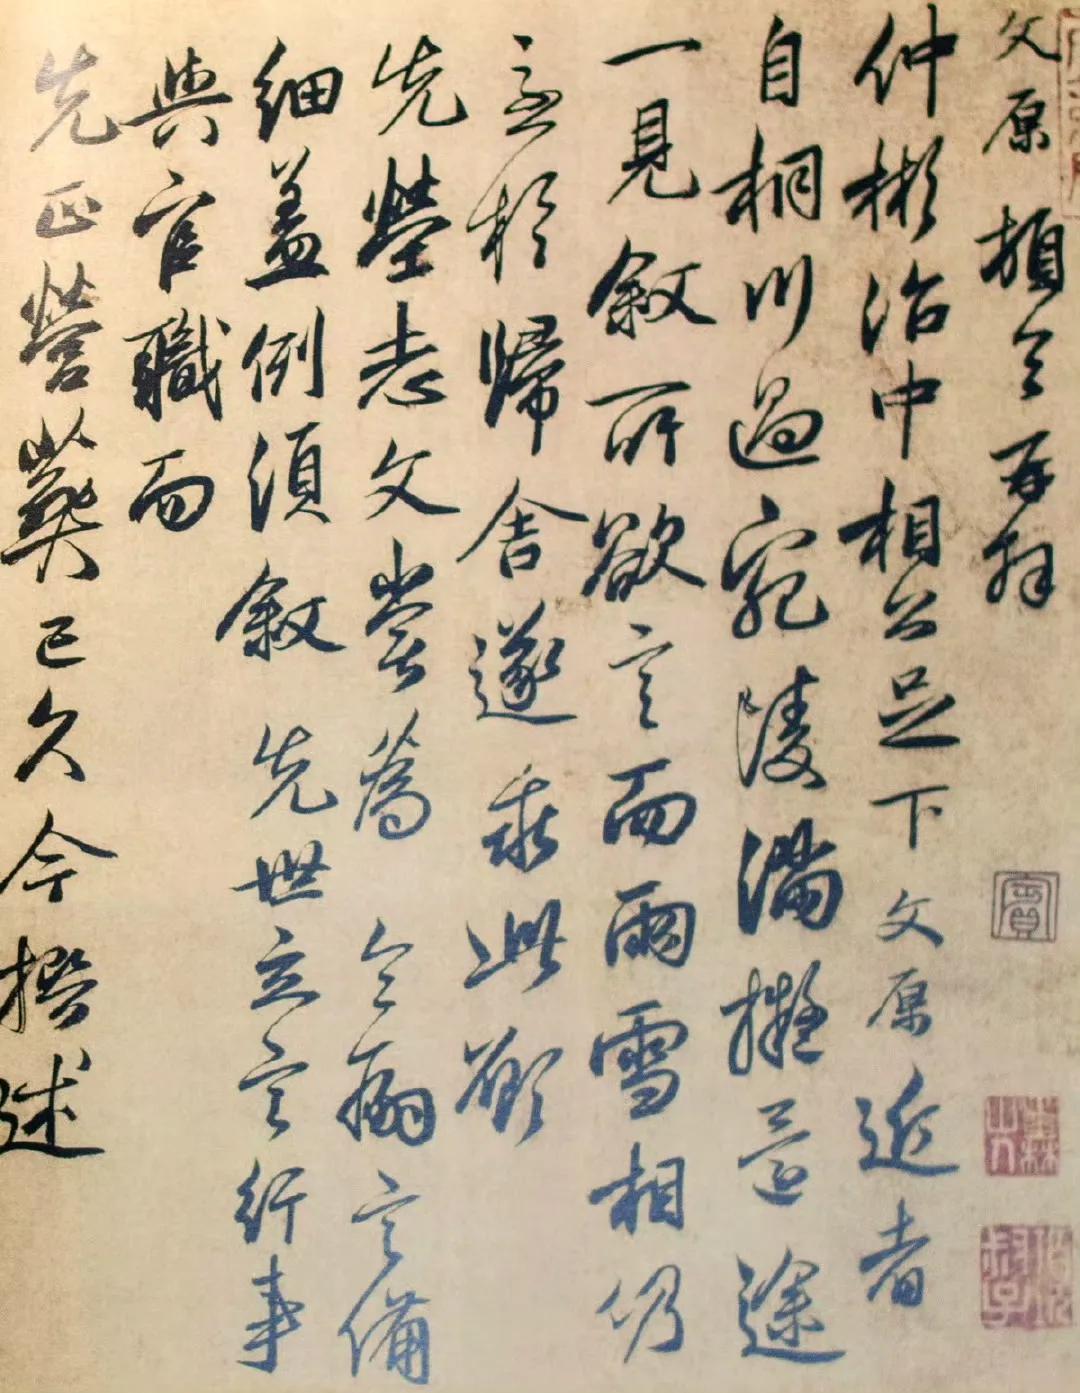 文原頓首再拜
仲彬治中相公足下文原近者
自桐川過宛陵濡擬意途
一見敘所欲言而雨雪相仍
亟於歸舍遂乖此願
先塋志文嘗為令嗣言備
細蓋例須敘先世立言行事
與官職而
先正營葬已久今撰述